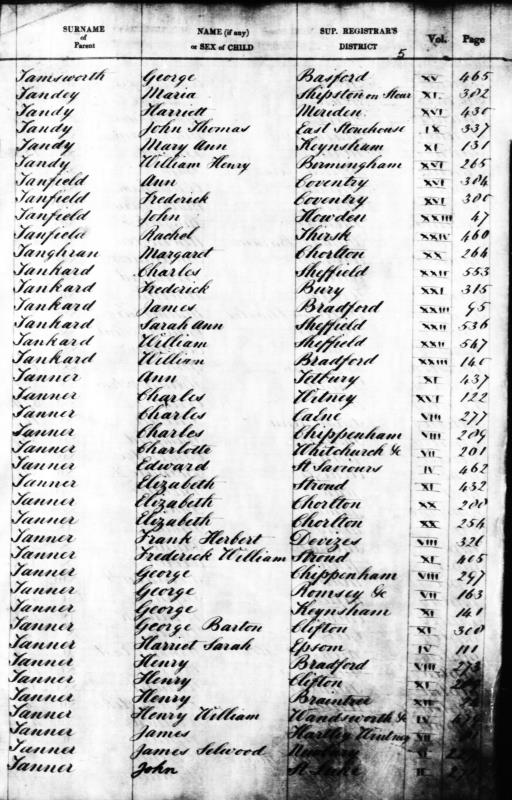 SURNAME of Parent NAME (if any) or SEX of CHILD SUP. REGISTRAR'S DISTRICT 5 Vol. Page
Tamsworth George Basford XV 465
Tandey Maria Shipston on Stour XI 302
Tandy Harriett Meriden XVI 430
Tandy John Thomas East Stonehouse IX 337
Tandy Mary Ann Keynsham XI 131
Tandy William Henry Birmingham XVI 265
Tanfield Ann Coventry XVI 304
Tanfield Frederick Coventry XVI 300
Tanfield John Howden XXIII 47
Tanfield Rachel Thirsk XXIV 460
Tanghran Margaret Chorlton XX 264
Tankard Charles Sheffield XXII 553
Tankard Frederick Bury XXI 315
Tankard James Bradford XXIII 95
Tankard Sarah Ann Sheffield XXII 536
Tankard William Sheffield XXII 547
Tankard William Bradford XXIII 140
Tanner Ann Tetbury XI 437
Tanner Charles Witney XVI 122
Tanner Charles Calne VIII 277
Tanner Charles Chippenham VIII 289
Tanner Charlotte Whitchurch &c VII 201
Tanner Edward St Saviours IV 462
Tanner Elizabeth Stroud XI 432
Tanner Elizabeth Chorlton XX 200
Tanner Elizabeth Chorlton XX 254
Tanner Frank Herbert Devizes VIII 326
Tanner Frederick William Stroud XI 405
Tanner George Chippenham VIII 297
Tanner George Romsey &c VII 163
Tanner George Keynsham XI 141
Tanner George Barton Clifton XI 300
Tanner Harriet Sarah Epsom IV 111
Tanner Henry Bradford VIII 273
Tanner Henry Clifton XI
Tanner Henry Braintree XII
Tanner Henry William Wandsworth &c IV
Tanner James Hartley Wintney VII
Tanner James Selwood Newbury
Tanner John St Luke II